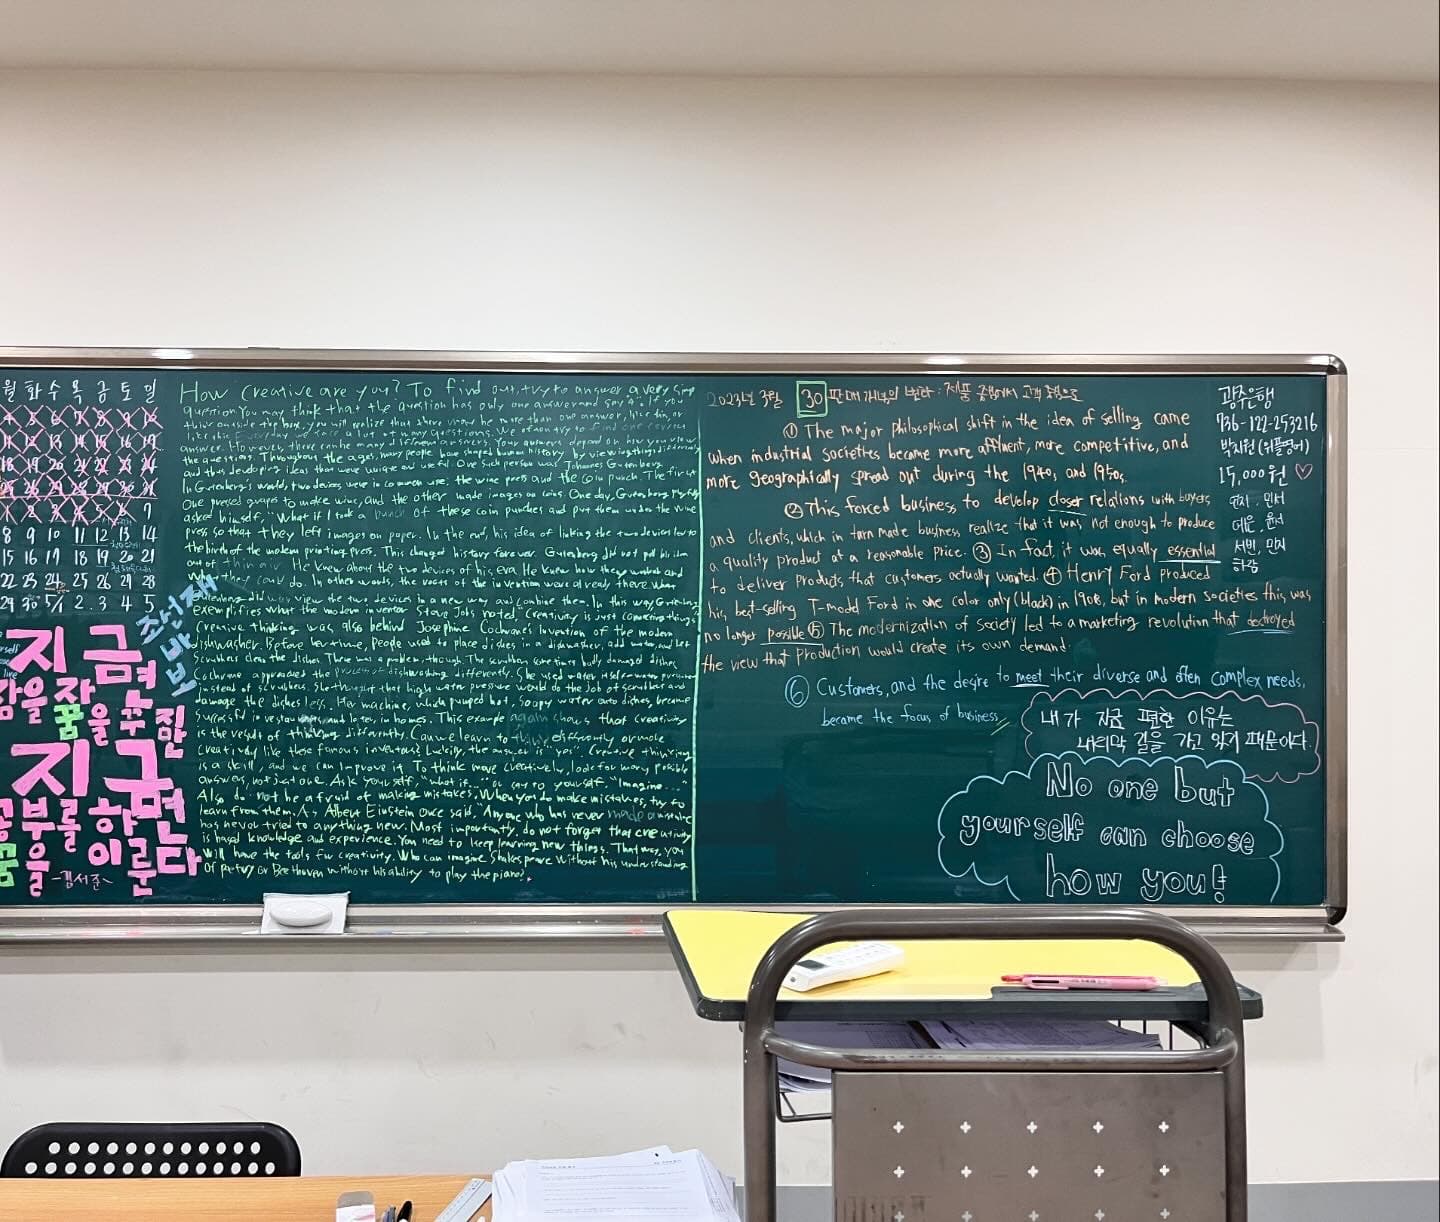 월 화 수 목 금 토 일
8 9 10 11 12 13 14
15 16 17 18 19 20 21
22 23 24 25 26 27 28
29 30 5/1 2. 3 4 5
조선재
바보
지금
잠을 자면
꿈을 꾸지만
지금
공부를 하면
꿈을 이룬다
-김서준-
How creative are you? To find out, try to answer a very simp
question. You may think that the question has only one answer and say 4. If you
think outside the box, you will realize that there may be more than one answer, like thin, or
answer. However, there can be many different answers. Your answers depend on how you view
the question. Throughout the ages, many people have shaped human history by viewing things differently
and thus developing ideas that were unique and useful. One such person was Johannes Gutenberg.
In Gutenberg's world, two devices were in common use: the wine press and the coin punch. The first
One pressed grapes to make wine, and the other made images on coins. One day, Gutenberg playfully
asked himself, "What if I took a bunch of these coin punches and put them under the wine
press so that they left images on paper. In the end, his idea of linking the two devices led to
the birth of the modern printing press. This changed history forever. Gutenberg did not pull his idea
out of thin air. He knew about the two devices of his era. He knew how they worked and
what they could do. In other words, the roots of the invention were already there. What
Gutenberg did was view the two devices in a new way and combine them. In this way, Gutenberg
exemplifies what the modern inventor Steve Jobs noted. "Creativity is just connecting things"
Creative thinking was also behind Josephine Cochrane's invention of the modern
dishwasher. Before her time, people used to place dishes in a dishwasher, add water, and let
Scrubbers clean the dishes. There was a problem, though. The scrubbers sometimes badly damaged dishes.
Cochrane approached the problem of dishwashing differently. She used water itself-water pressure
instead of scrubbers. She thought that high water pressure would do the job of scrubbers and
damage the dishes less. Her machine, which pumped hot, soapy water onto dishes, became
successful in restaurants and later, in homes. This example again shows that creativity
is the result of thinking differently. Can we learn to think differently or more
creatively like these famous inventors? Luckily, the answer is "yes". Creative thinking
is a skill, and we can improve it. To think more creatively, look for many possible
answers, not just one. Ask yourself, "what if..." or say to yourself, "Imagine..."
Also do not be afraid of making mistakes. When you do make mistakes, try to
learn from them. As Albert Einstein once said, "Anyone who has never made a mistake
has never tried anything new. Most importantly, do not forget that creativity
is based knowledge and experience. You need to keep learning new things. That way, you
will have the tools for creativity. Who can imagine Shakespeare without his understanding
of poetry or Beethoven without his ability to play the piano?
2023년 3월 30 판매개념의 변화 : 제품 중심에서 고객 중심으로
① The major philosophical shift in the idea of selling came
when industrial societies became more affluent, more competitive, and
more geographically spread out during the 1940s and 1950s.
② This forced business to develop closer relations with buyers
and clients, which in turn made business realize that it was not enough to produce
a quality product at a reasonable price. ③ In fact, it was equally essential
to deliver products that customers actually wanted. ④ Henry Ford produced
his best-selling T-model Ford in one color only (black) in 1908, but in modern societies this was
no longer possible. ⑤ The modernization of society led to a marketing revolution that destroyed
the view that production would create its own demand.
⑥ Customers, and the desire to meet their diverse and often complex needs,
became the focus of business
내가 지금 편한 이유는
내리막 길을 가고 있기 때문이다.
No one but
yourself can choose
how you!
광주은행
736-122-253216
박지원 (위풀잉어)
15,000원 ♡